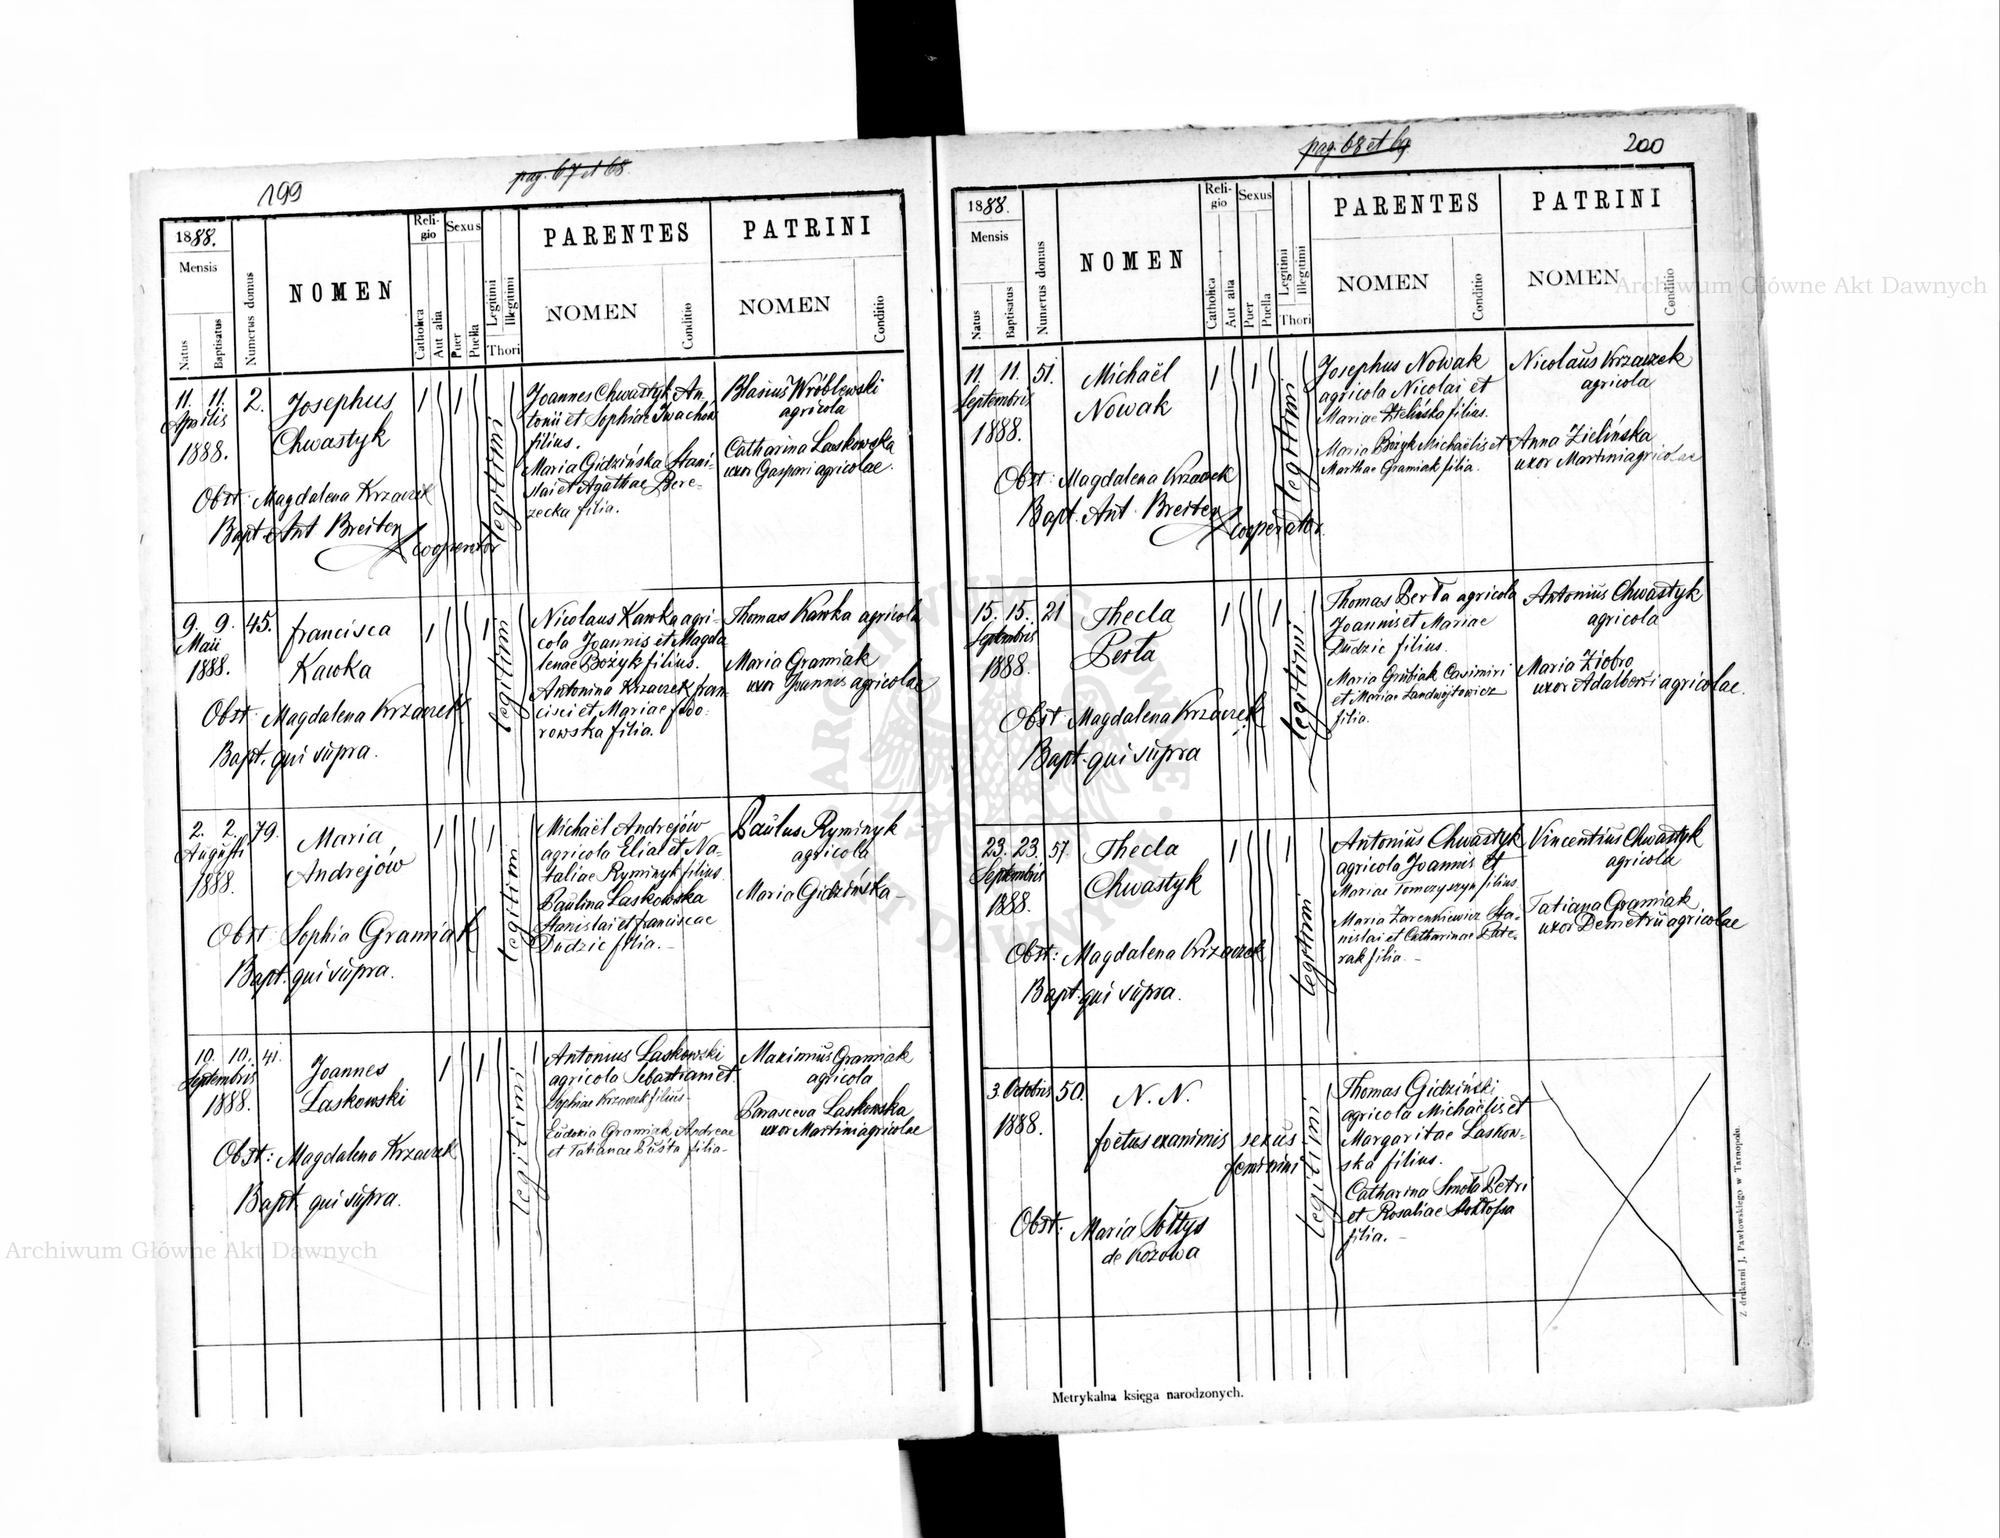 199
pag. 67 et 68.
1888.
Mensis
Natus
Baptisatus
Numerus domus
NOMEN
Religio
Catholica
Aut alia
Sexus
Puer
Puella
Legitimi
Illegitimi
Thori
PARENTES
NOMEN
Conditio
PATRINI
NOMEN
Conditio
11. 11. 2.
Aprilis
1888.
Josephus
Chwastyk
1 1
legitimi
Joannes Chwastyk An-
tonii et Sophiae Iwachow
filius.
Maria Gidzińska Stani-
slai et Agathae Bere-
zecka filia.
Blasius Wróblewski
agricola
Catharina Laskowska
uxor Gaspari agricolae.
Obst: Magdalena Krzaczek
Bapt. Ant Breiter
cooperator
9. 9. 45.
Maii
1888.
Francisca
Kawka
1 1
legitimi
Nicolaus Kawka agri-
cola Joannis et Magda
lenae Bożyk filius.
Antonina Krzaczek Fran-
cisci et Mariae Fedo-
rowska filia.
Thomas Kawka agricola
Maria Gramiak
uxor Joannis agricolae
Obst: Magdalena Krzaczek
Bapt. qui supra.
2. 2. 79.
Augusti
1888.
Maria
Andrejów
1 1
legitimi
Michaël Andrejów
agricola Eliae et Na-
taliae Ryminyk filius
Paulina Laskowska
Stanislai et Franciscae
Dudzic filia. -
Paulus Ryminyk
agricola
Maria Gidzińska -
Obst Sophia Gramiak
Bapt. qui supra.
10. 10. 41.
Septembris
1888.
Joannes
Laskowski
1 1
legitimi
Antonius Laskowski
agricola Sebastiani et
Sophiae Krzaczek filius-
Eudoxia Gramiak Andreae
et Tatianae Pusta filia-
Maximus Gramiak
agricola
Parasceva Laskowska
uxor Martini agricolae
Obst: Magdalena Krzaczek
Bapt qui supra.
pag. 68 et 69
200
1888.
Mensis
Natus
Baptisatus
Numerus domus
NOMEN
Religio
Catholica
Aut alia
Sexus
Puer
Puella
Legitimi
Illegitimi
Thori
PARENTES
NOMEN
Conditio
PATRINI
NOMEN
Conditio
11. 11. 51.
Septembris
1888.
Michaël
Nowak
1 1
legitimi
Josephus Nowak
agricola Nicolai et
Mariae filius.
Maria Bożyk Michaëlis et
Marthae Gramiak filia.
Nicolaus Krzaczek
agricola
Anna Zielińska
uxor Martini agricolae
Obst: Magdalena Krzaczek
Bapt. Ant. Breiter
cooperator.
15. 15. 21
Septembris
1888.
Thecla
Perta
1 1
legitimi
Thomas Perta agricola
Joannis et Mariae
Dudzic filius.
Maria Grubiak Casimiri
et Mariae Landwójtowicz
filia.
Antonius Chwastyk
agricola
Maria Ziobro
uxor Adalberti agricolae.
Obst Magdalena Krzaczek
Bapt. qui supra
23. 23. 57.
Septembris
1888.
Thecla
Chwastyk
1 1
legitimi
Antonius Chwastyk
agricola Joannis et
Mariae Tomczyszyn filius.
Maria Zarenkiewicz Sta-
nislai et Catharinae Pate-
rak filia. -
Vincentius Chwastyk
agricola
Tatiana Gramiak
uxor Demetrii agricolae
Obst: Magdalena Krzaczek
Bapt. qui supra.
3. Octobris 50.
1888.
N. N.
foetus exanimis sexus
feminini
legitimi
Thomas Gidziński
agricola Michaëlis et
Margaritae Laskow-
ska filius.
Catharina Smoła Petri
et Rosaliae
filia. -
Obst: Maria Sołtys
de Kozowa
Metrykalna księga narodzonych.
Z drukarni J. Pawłowskiego w Tarnopolu.
Archiwum Główne Akt Dawnych
Archiwum Główne Akt Dawnych
ARCHIWUM GŁÓWNE AKT DAWNYCH